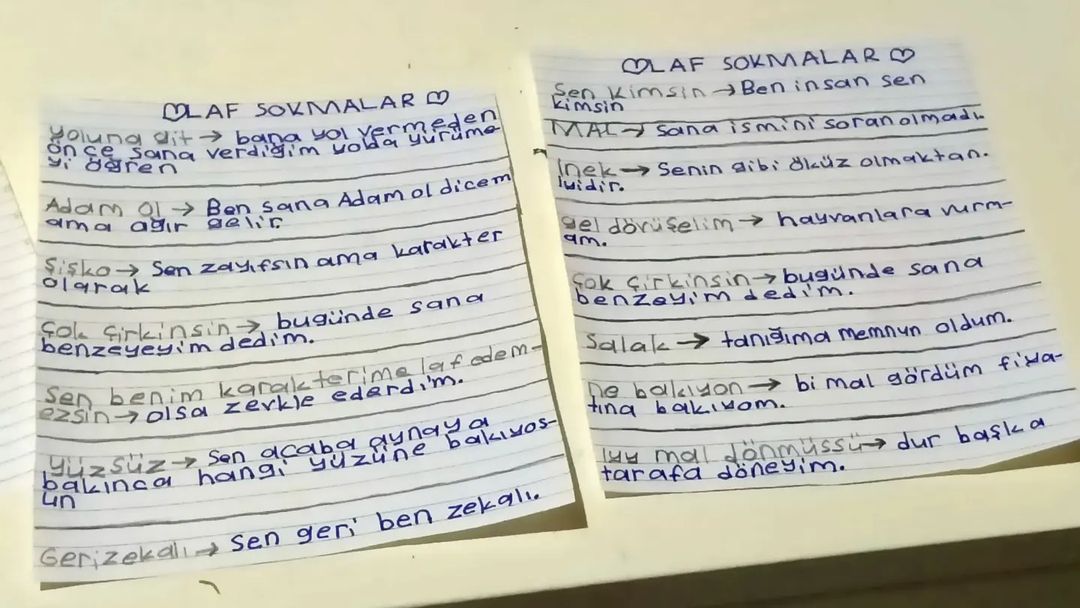 ♡LAF SOKMALAR♡
yoluna git → bana yol vermeden
önce sana verdiğim yolda yürüme-
yi öğren
Adam ol → Ben sana Adam ol dicem
ama ağır gelir.
Şişko → Sen zayıfsın ama karakter
olarak
Çok Çirkinsin → bugünde sana
benzeyeyim dedim.
Sen benim karakterime laf edem-
ezsin → olsa zevkle ederdim.
yüzsüz → Sen acaba aynaya
bakınca hangi yüzüne bakıyos-
un
Gerizekalı → Sen geri ben zekalı.
♡LAF SOKMALAR♡
Sen kimsin → Ben insan sen
kimsin
MAL → Sana ismini soran olmadı.
İnek → Senin gibi öküz olmaktan.
iyidir.
gel dövüşelim → hayvanlara vurm-
am.
Çok Çirkinsin → bugünde sana
benzeyim dedim.
Salak → tanığıma memnun oldum.
ne bakıyon → bi mal gördüm fiya-
tına bakıyom.
Iyy mal dönmüssü → dur başka
tarafa döneyim.